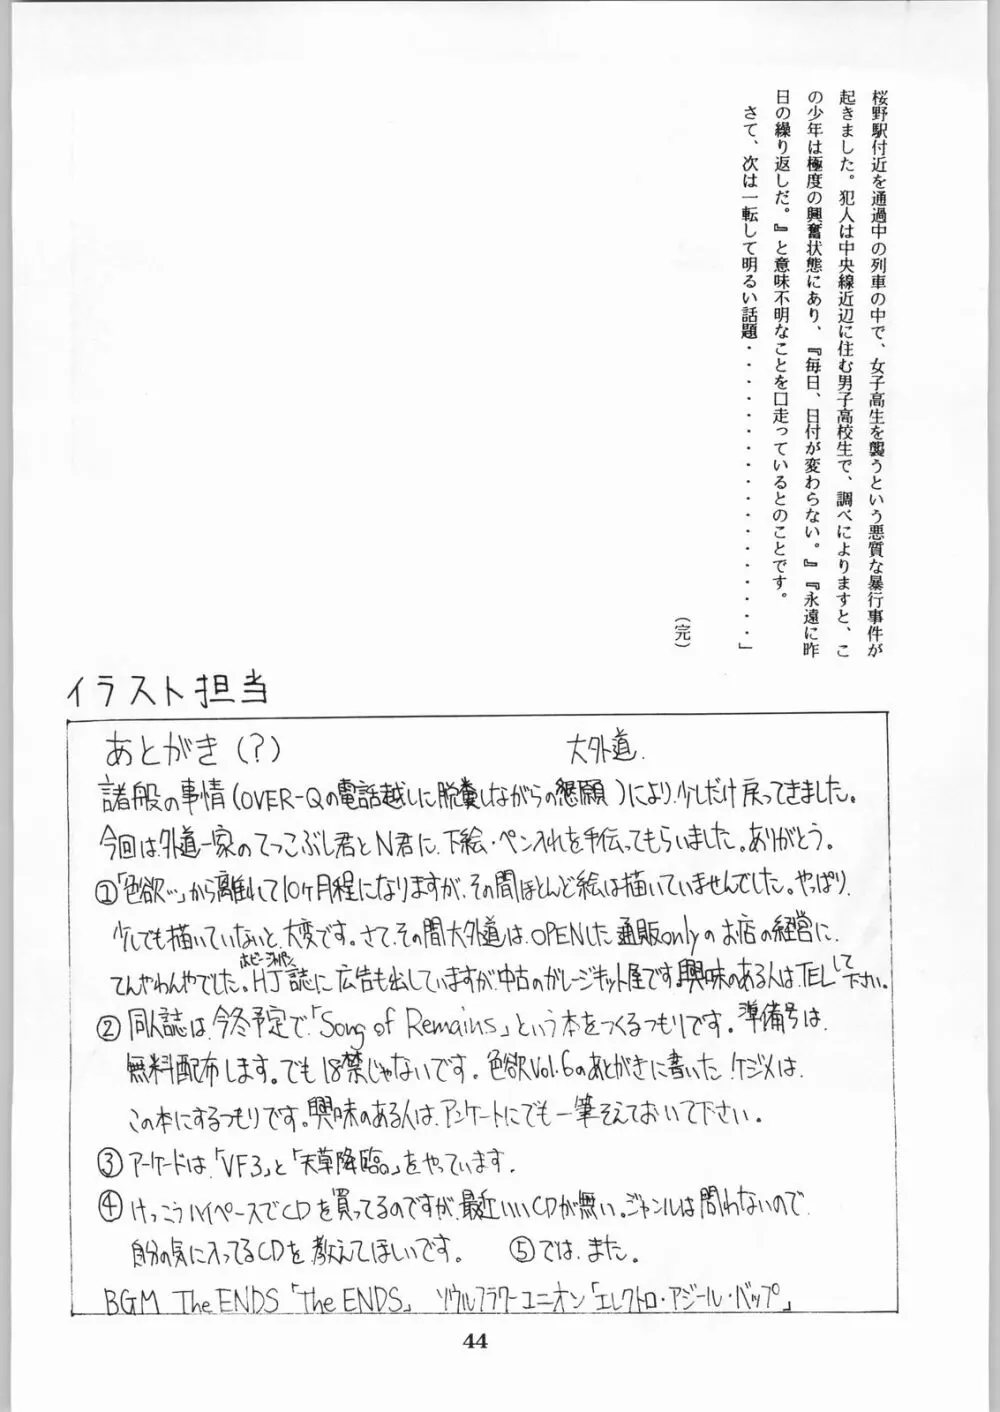 桜野駅付近を通過中の列車の中で、女子高生を襲うという悪質な暴行事件が
起きました。犯人は中央線近辺に住む男子高校生で、調べによりますと、こ
の少年は極度の興奮状態にあり、『毎日、日付が変わらない。』『永遠に昨
日の繰り返しだ。』と意味不明なことを口走っているとのことです。
さて、次は一転して明るい話題・・・・・・・・・・・・・・・・・・・」
(完)
イラスト担当
あとがき(?) 大外道.
諸般の事情(OVER-Qの電話越しに脱糞しながらの懇願)により、少しだけ戻ってきました。
今回は、外道一家のてっこぶし君とN君に、下絵・ペン入れを手伝ってもらいました。ありがとう。
①「色欲…」から離れて10ヶ月程になりますが、その間ほとんど絵は描いていませんでした。やっぱり、
少しでも描いていないと、大変です。さて、その間大外道は、OPENした通販onlyのお店の経営に、
てんやわんやでした。HJ誌(ホビージャパン)に広告も出していますが、中古のガレージキット屋です。興味のある人は、TELして下さい。
②同人誌は、今冬予定で、「Song of Remains」という本をつくるつもりです。準備号は、
無料配布します。でも18禁じゃないです。色欲Vol.6のあとがきに書いた、ケジメは、
この本にするつもりです。興味のある人は、アンケートにでも一筆そえておいて下さい。
③アーケードは、「VF3」と「天草降臨。」をやっています.
④けっこうハイペースでCDを買ってるのですが、最近いいCDが無い。ジャンルは問わないので、
自分の気に入ってるCDを、教えてほしいです。 ⑤では、また。
BGM The ENDS「the ENDS」 ソウルフラワーユニオン「エレクトロ・アジール・バップ」
44